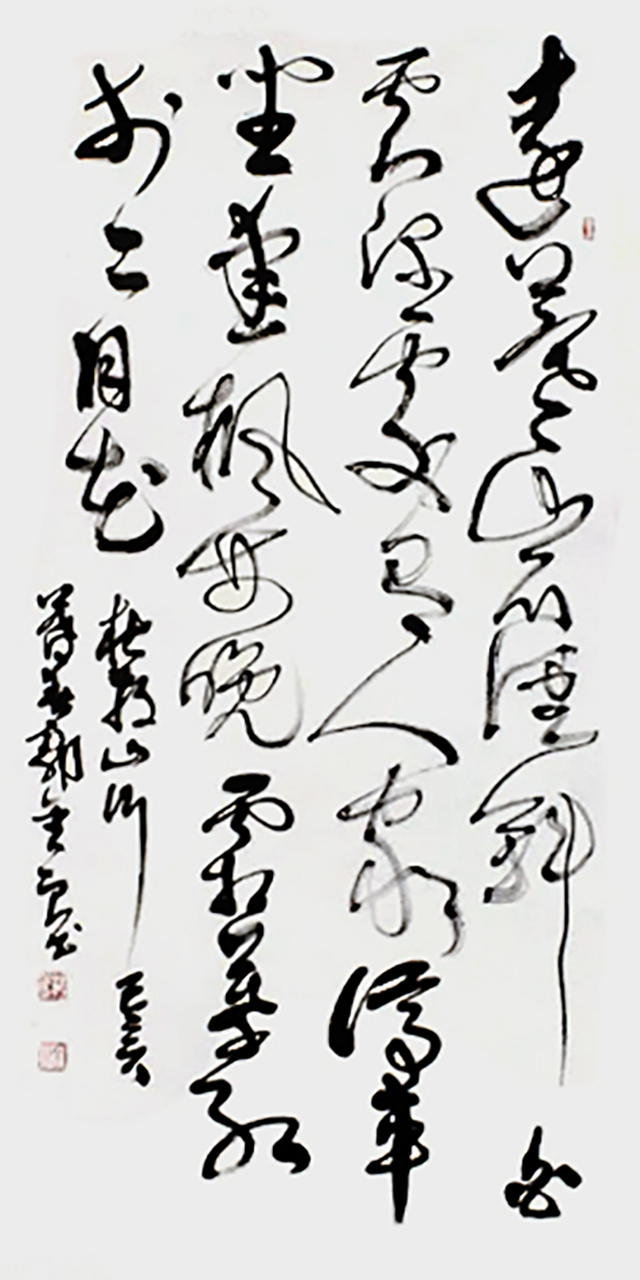 遠上寒山石徑斜白
雲深處有人家停車
坐愛楓林晚霜葉紅
於二月花
杜牧山行